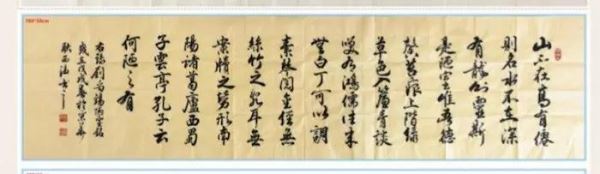 山不在高有僊
则名水不在深
有龍则靈斯
是陋室唯吾德
馨苔痕上階緑
草色入簾青談
笑有鴻儒往来
無白丁可以調
素琴閲金經無
絲竹之亂耳無
案牘之勞形南
陽諸葛廬西蜀
子雲亭孔子云
何陋之有
右録劉禹錫陋室銘